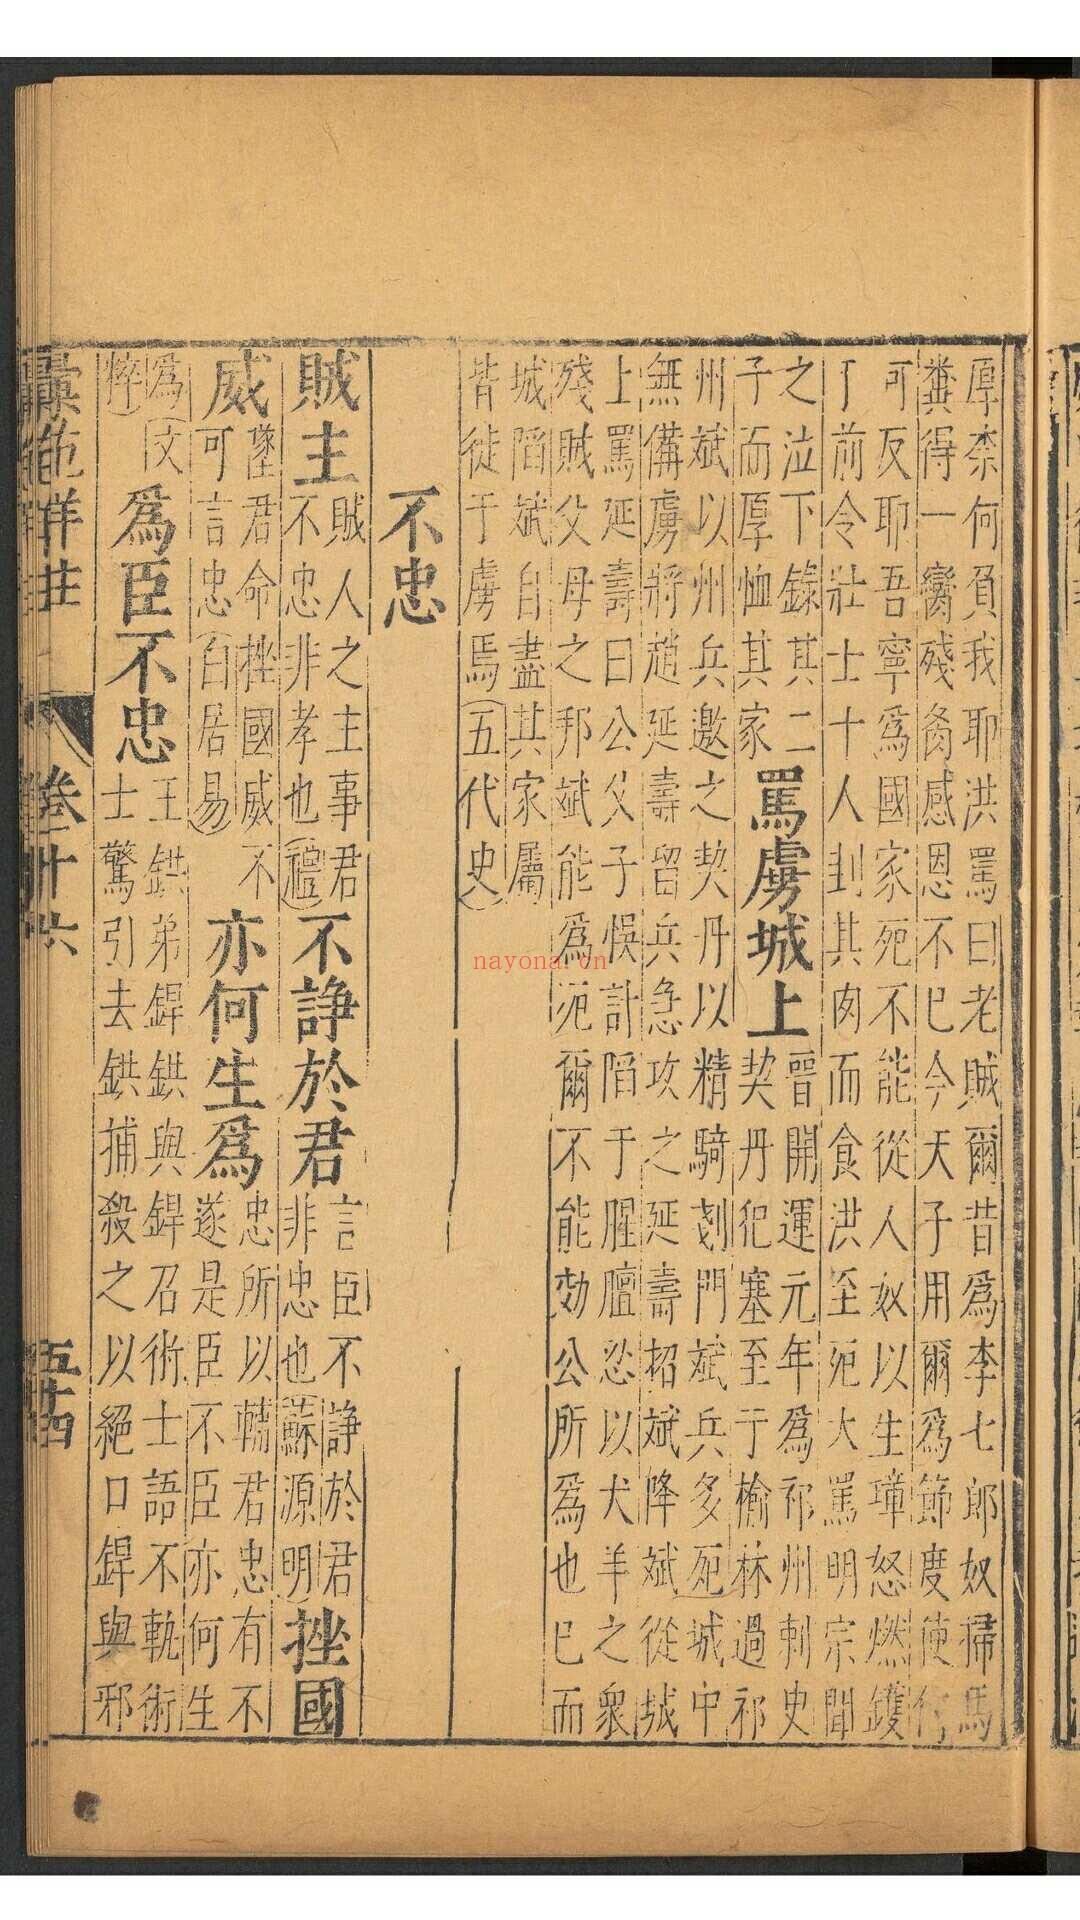 厚柰何負我耶洪罵曰老賊爾昔爲李七郎奴掃馬
糞得一臠殘炙感恩不已今天子用爾爲節度使何
可反耶吾寧爲國家死不能從人奴以生璋怒燃鑊
于前令壯士十人刲其肉而食洪至死大罵明宗聞
之泣下錄其二
子而厚恤其家
罵虜城上
晉開運元年爲祁州刺史
契丹犯塞至于榆林過祁
州斌以州兵邀之契丹以精騎剗門斌兵多死城中
無備虜將趙延壽留兵急攻之延壽招斌降斌從城
上罵延壽曰公父子悞計陷于腥膻忍以犬羊之衆
殘賊父母之邦斌能爲死爾不能効公所爲也已而
城陷斌自盡其家屬
皆徒于虜焉(五代史)
不忠
賊主
賊人之主事君
不忠非孝也(禮)
不諍於君
言臣不諍於君
非忠也(蘇源明)
挫國
威
墜君命挫國威不
可言忠(白居易)
亦何生爲
忠所以輔君忠有不
遂是臣不臣亦何生
爲(文
粹)
爲臣不忠
王鉷弟銲鉷與銲召術士語不軌術
士驚引去鉷捕殺之以絕口銲與邪
彙苑詳註
卷二十六
五十四
nayona.cn